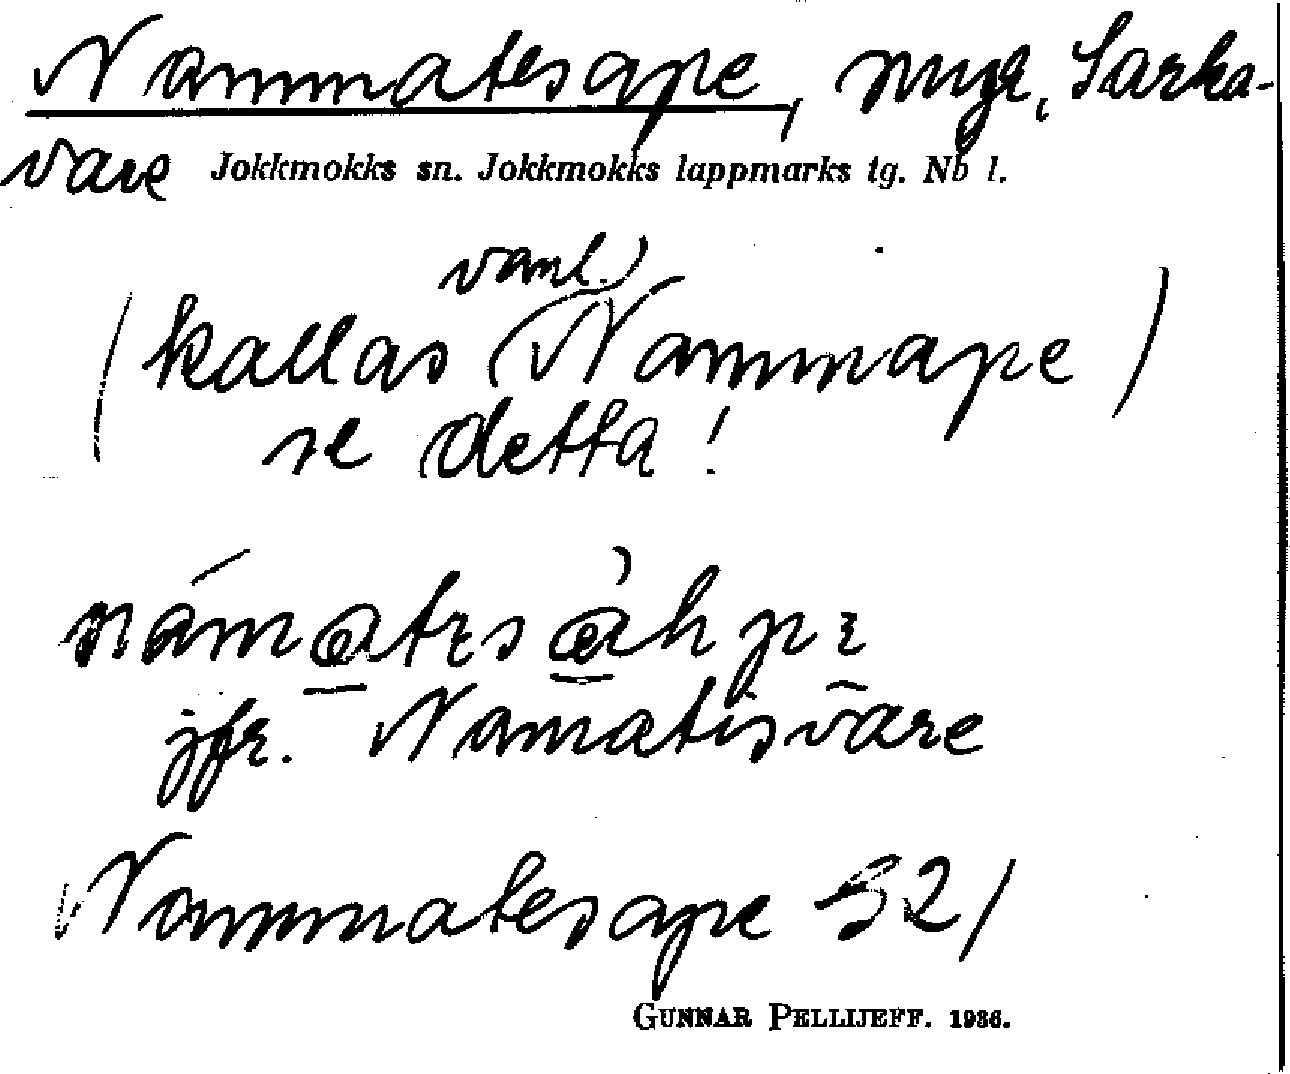 Nammatesape, myr, Sarka-
vare Jokkmokks sn. Jokkmokks lappmarks tg. Nb l.
vanl.)
(kallas (Nammape)
se detta!
jfr. Namatisvāre
Nammatesape S2/
GUNNAR PELLIJEFF. 1936.